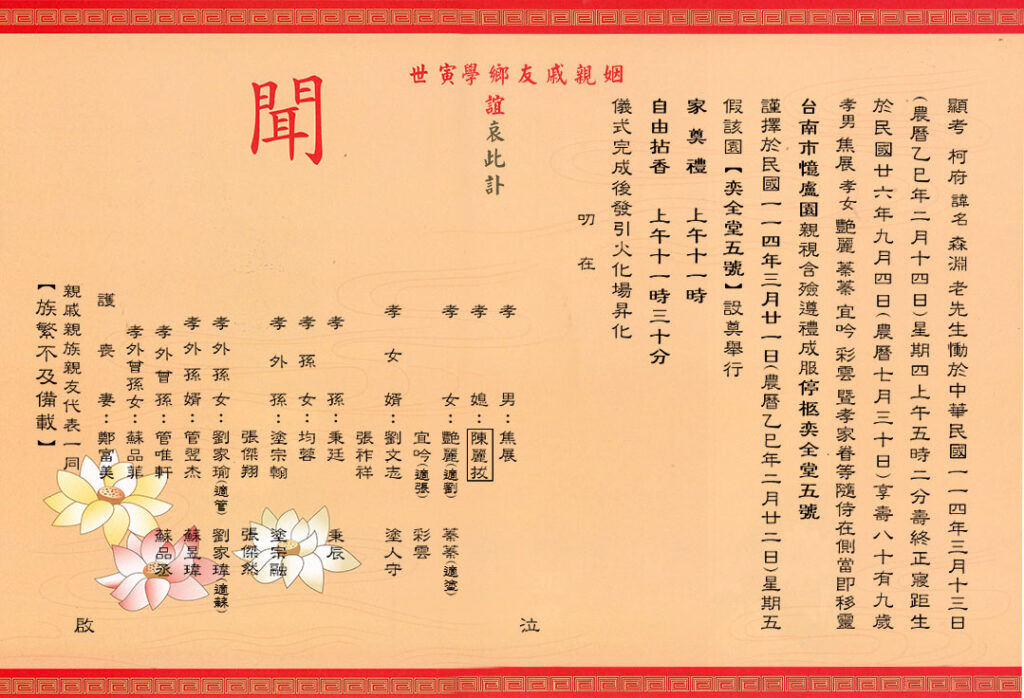 顯考 柯府 諱名 森淵 老先生慟於中華民國一一四年三月十三日
(農曆乙巳年二月十四日)星期四上午五時二分壽終正寢距生
於民國廿六年九月四日(農曆七月三十日)享壽八十有九歲
孝男 焦展 孝女 艷麗 蓁蓁 宜吟 彩雲 暨孝家眷等隨侍在側當即移靈
台南市憶盧園親視含殮遵禮成服停柩奕全堂五號
謹擇於民國一一四年三月廿一日(農曆乙巳年二月廿二日)星期五
假該園【奕全堂五號】設奠舉行
家奠禮 上午十一時
自由拈香 上午十一時三十分
儀式完成後發引火化場昇化
叨在
姻親戚友鄉學寅世
誼哀此訃
聞
泣
孝男:焦展
孝媳:陳麗
孝女:艷麗(適劉) 蓁蓁(適塗)
宜吟(適張) 彩雲
孝女婿:劉文志 塗人守
張祚祥
孝孫:秉廷 秉辰
孝孫女:均蓉
孝外孫:塗宗翰 塗宗融
張傑翔 張傑然
孝外孫女:劉家瑜(適管) 劉家瑋(適蘇)
孝外孫婿:管翌杰 蘇昱瑋
孝外曾孫:管唯軒 蘇品丞
孝外曾孫女:蘇品菲
護喪妻:鄭富美
親戚親族親友代表一同
啟
【族繁不及備載】